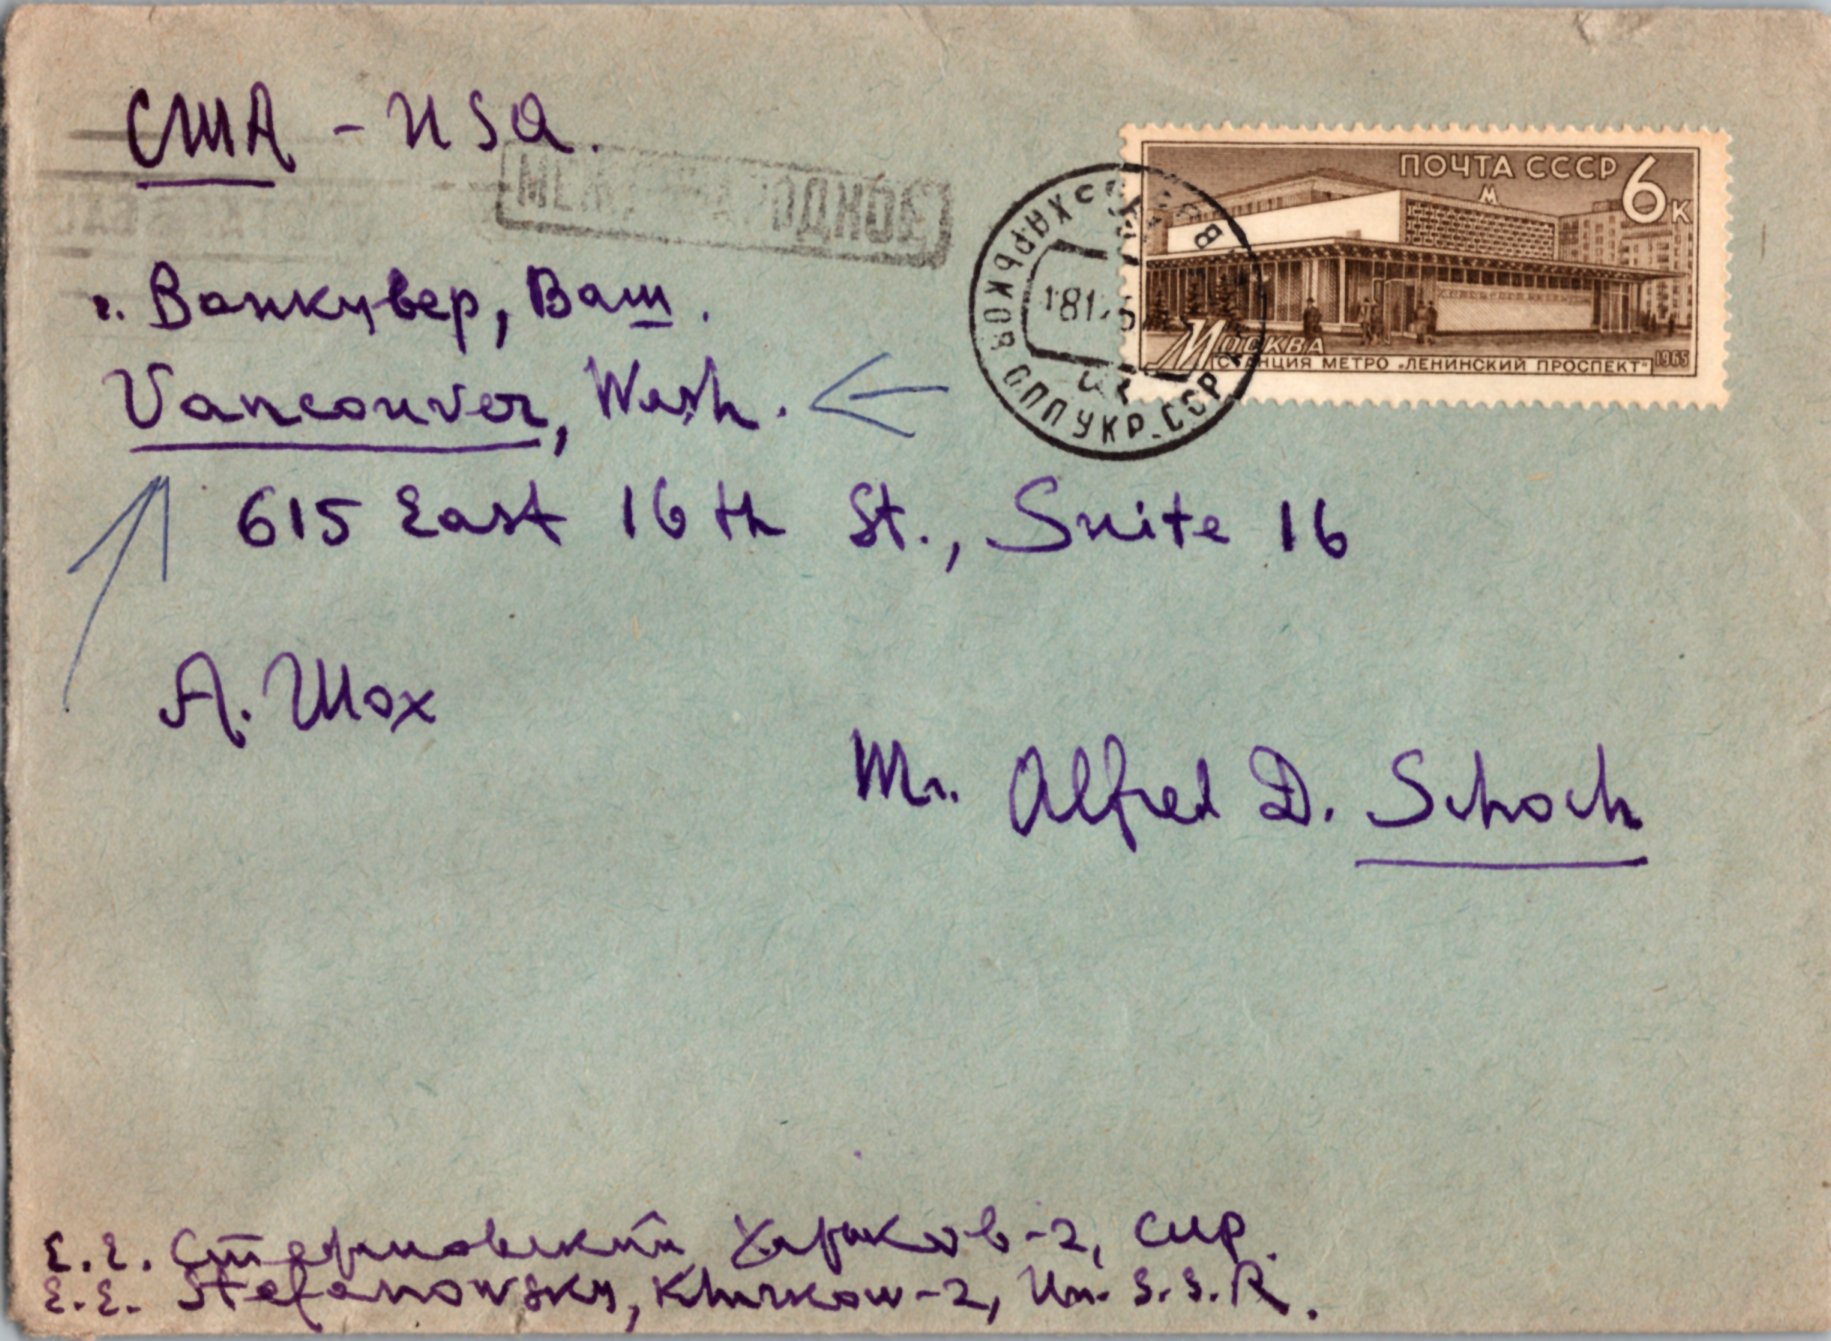 США - USA.
МЕЖДУНАРОДНОЕ
г. Ванкувер, Ваш.
Vancouver, Wash.
615 East 16th St., Suite 16
А. Шох
Mr. Alfred D. Schoch
ПОЧТА СССР 6к
М
МОСКВА
СТАНЦИЯ МЕТРО „ЛЕНИНСКИЙ ПРОСПЕКТ" 1965
ХАРЬКОВ
УКР. ССР
Е.Е. Стефановский Харьков-2,
E.E. Stefanowsky, Kharkow-2, Un. S.S.R.